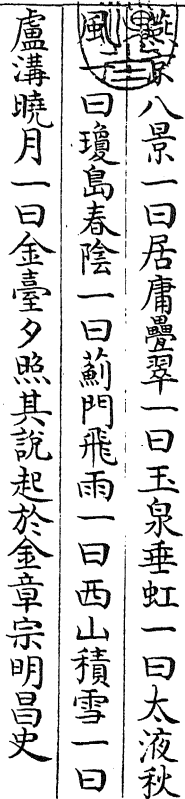 燕京八景一曰居庸疊翠一曰玉泉垂虹一曰太液秋
風一曰瓊島春陰一曰薊門飛雨一曰西山積雪一曰
盧溝曉月一曰金臺夕照其說起於金章宗明昌史